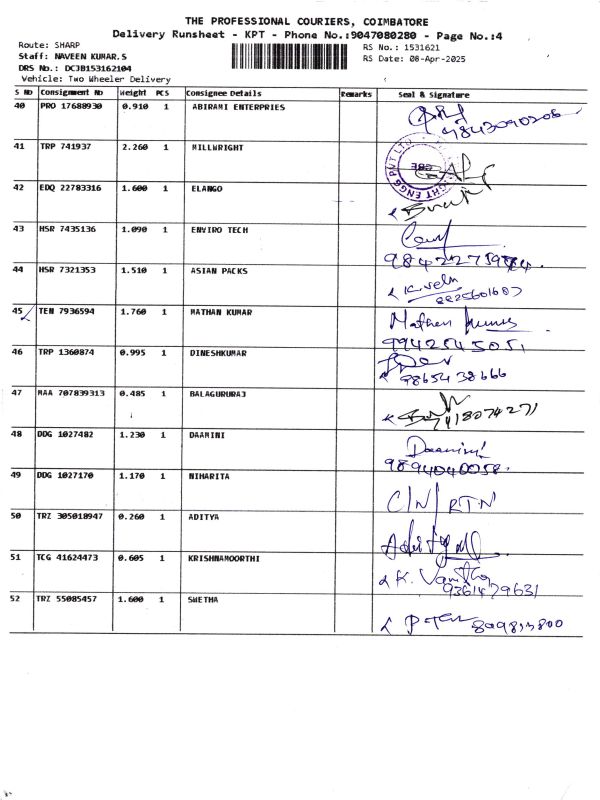 THE PROFESSIONAL COURIERS, COIMBATORE
Delivery Runsheet - KPT - Phone No.:9047080280 - Page No.:4
Route: SHARP RS No.: 1531621
Staff: NAVEEN KUMAR.S RS Date: 08-Apr-2025
DRS No.: DCJB153162104
Vehicle: Two Wheeler Delivery
S NO Consignment No Weight PCS Consignee Details Remarks Seal & Signature
40 PRO 17680930 0.910 1 ABIRAMI ENTERPRIES
9843090206
41 TRP 741937 2.260 1 MILLWRIGHT
ENGG PVT LTD
CBE
42 EDQ 22783316 1.600 1 ELANGO
43 HSR 7435136 1.090 1 ENVIRO TECH
44 HSR 7321353 1.510 1 ASIAN PACKS
K. Selvi
8825601687
45 TEN 7936594 1.760 1 MATHAN KUMAR Mathan Kumar
9942545051
46 TRP 1360874 0.995 1 DINESHKUMAR
9865438666
47 MAA 707839313 0.485 1 BALAGURURAJ
7418074271
48 DDG 1027482 1.230 1 DAAMINI Daamini
9894040058.
49 DDG 1027170 1.170 1 NIHARITA
C/N/RTN
50 TRZ 305018947 0.260 1 ADITYA
51 TCG 41624473 0.605 1 KRISHNAMOORTHI K. Vanitha
9361479631
52 TRZ 55085457 1.600 1 SWETHA